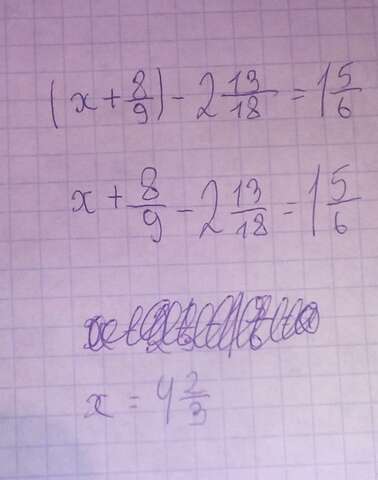 (x + 8/9) - 2 13/18 = 1 5/6
x + 8/9 - 2 13/18 = 1 5/6
x = 4 2/3